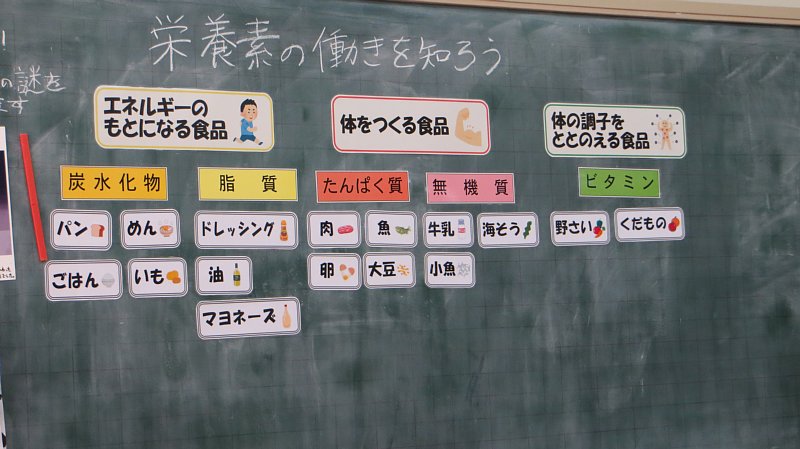 栄養素の働きを知ろう
の謎を
ます
エネルギーの
もとになる食品
体をつくる食品
体の調子を
ととのえる食品
炭水化物
脂質
たんぱく質
無機質
ビタミン
パン
めん
ドレッシング
肉
魚
牛乳
海そう
野さい
くだもの
ごはん
いも
油
卵
大豆
小魚
マヨネーズ